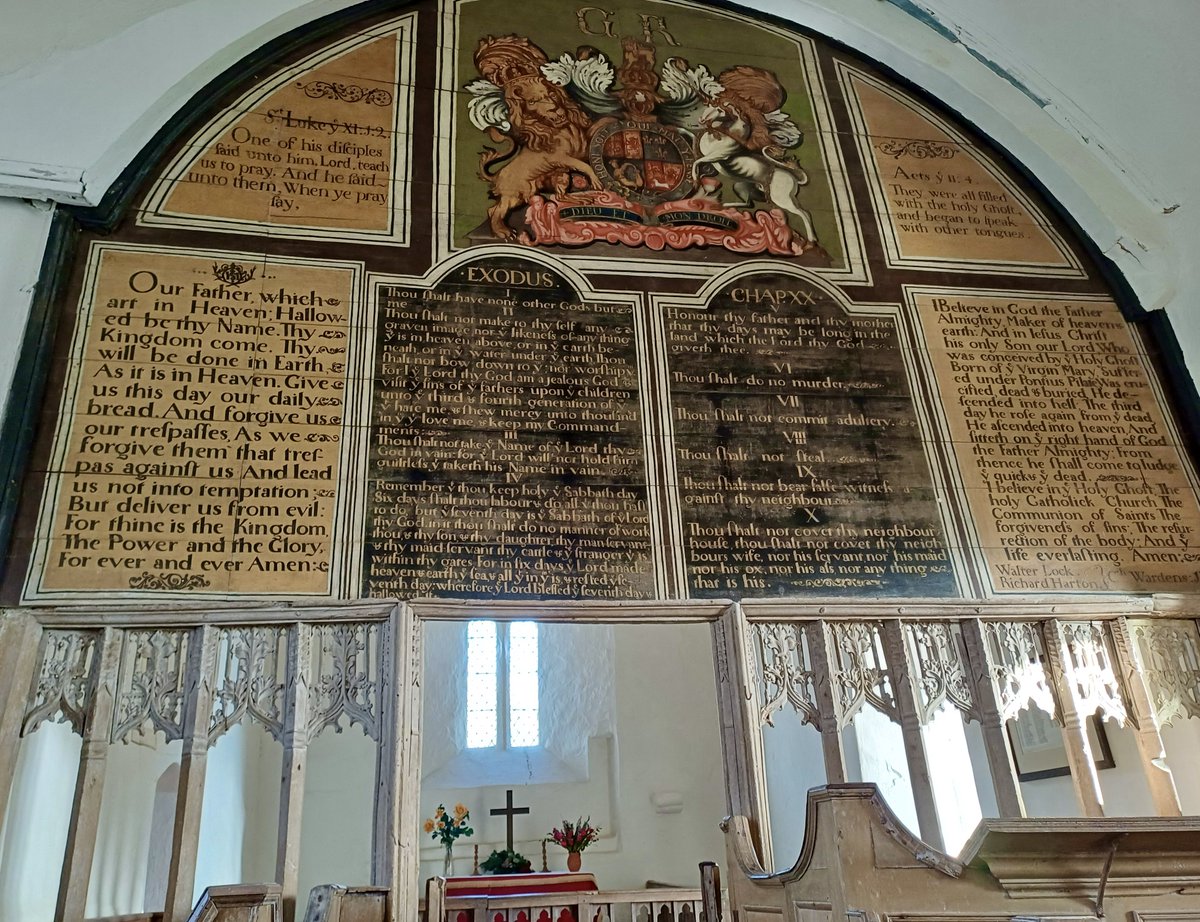 G R
HONI SOIT QUI MAL Y
DIEU ET MON DROIT
St Luke ẏ XI. 1.2.
One of his difciples
faid unto him, Lord, teach
us to pray. And he faid
unto them, When ye pray
fay,
Acts ẏ II. 4.
They were all filled
with the holy Ghoft,
and began to fpeak
with other tongues.
Our Father, which
art in Heaven; Hallow-
ed be thy Name. Thy
Kingdom come. Thy
will be done in Earth
As it is in Heaven. Give
us this day our daily
bread. And forgive us
our trefpaffes, As we
forgive them that tref-
pas againft us And lead
us not into temptation;
But deliver us from evil:
For thine is the Kingdom,
The Power and the Glory,
For ever and ever Amen:
EXODUS
I
Thou fhalt have none other Gods but
me
II
Thou fhalt not make to thy felf any
graven image nor ẏ likenefs of any thing
ẏ is in heaven above, or in ẏ earth be-
neath, or in ẏ water under ẏ earth, Thou
fhalt not bow down to ẏ: nor worfhip ẏ
For I ẏ Lord thy God am a jealous God &
vifit ẏ fins of ẏ fathers upon ẏ children
unto ẏ third & fourth generation of
ẏ hate me, & fhew mercy unto thoufand
ẏ ẏ love me & keep my Command-
ments
III
Thou fhalt not take ẏ Name of ẏ Lord thy
God in vain: for ẏ Lord will not hold him
guiltlefs ẏ taketh his Name in vain.
IV
Remember ẏ thou keep holy ẏ Sabbath day
Six days fhalt thou labour & do all ẏ thou haft
to do, but ẏ feventh day is ẏ Sabbath of ẏ Lord
thy God, in it thou fhalt do no manner of work
thou, & thy fon & thy daughter, thy manfervant
& thy maid-fervant thy cattle & ẏ ftranger ẏ is
within thy gates For in fix days ẏ Lord made
heaven & earth ẏ fea, & all ẏ in ẏ is, & refted ẏ fe-
venth day: wherefore ẏ Lord bleffed ẏ feventh day &
hallowed it
CHAP. XX
Honour thy father and thy mother
that thy days may be long in the
land which the Lord thy God
giveth thee.
VI
Thou fhalt do no murder.
VII
Thou fhalt not commit adultery.
VIII
Thou fhalt not fteal
IX
Thou fhalt not bear falfe witnefs
gainft thy neighbour
X
Thou fhalt not covet thy neighbour
houfe, thou fhalt not covet thy neigh
bours wife, nor his fervant nor his maid
nor his ox, nor his afs nor any thing
that is his.
I Believe in God the Father
Almighty, Maker of heaven &
earth: And in Iefus Chrift
his only Son our Lord Who
was conceived by ẏ Holy Ghoft
Born of ẏ Virgin Mary, Suffer
ed under Pontius Pilate Was cru-
cified, dead & buried, He de-
fcended into hell The third
day he rofe again from ẏ dead
He afcended into heaven And
fitteth on ẏ right hand of God
the Father Almighty: from
thence he fhall come to judge
ẏ quick & ẏ dead.
I believe in ẏ Holy Ghoft; The
holy Catholick Church; The
Communion of Saints The
forgivenefs of fins; The refur
rection of the body: And ẏ
life everlafting, Amen:
Walter Lock
Richard Harton C Wardens